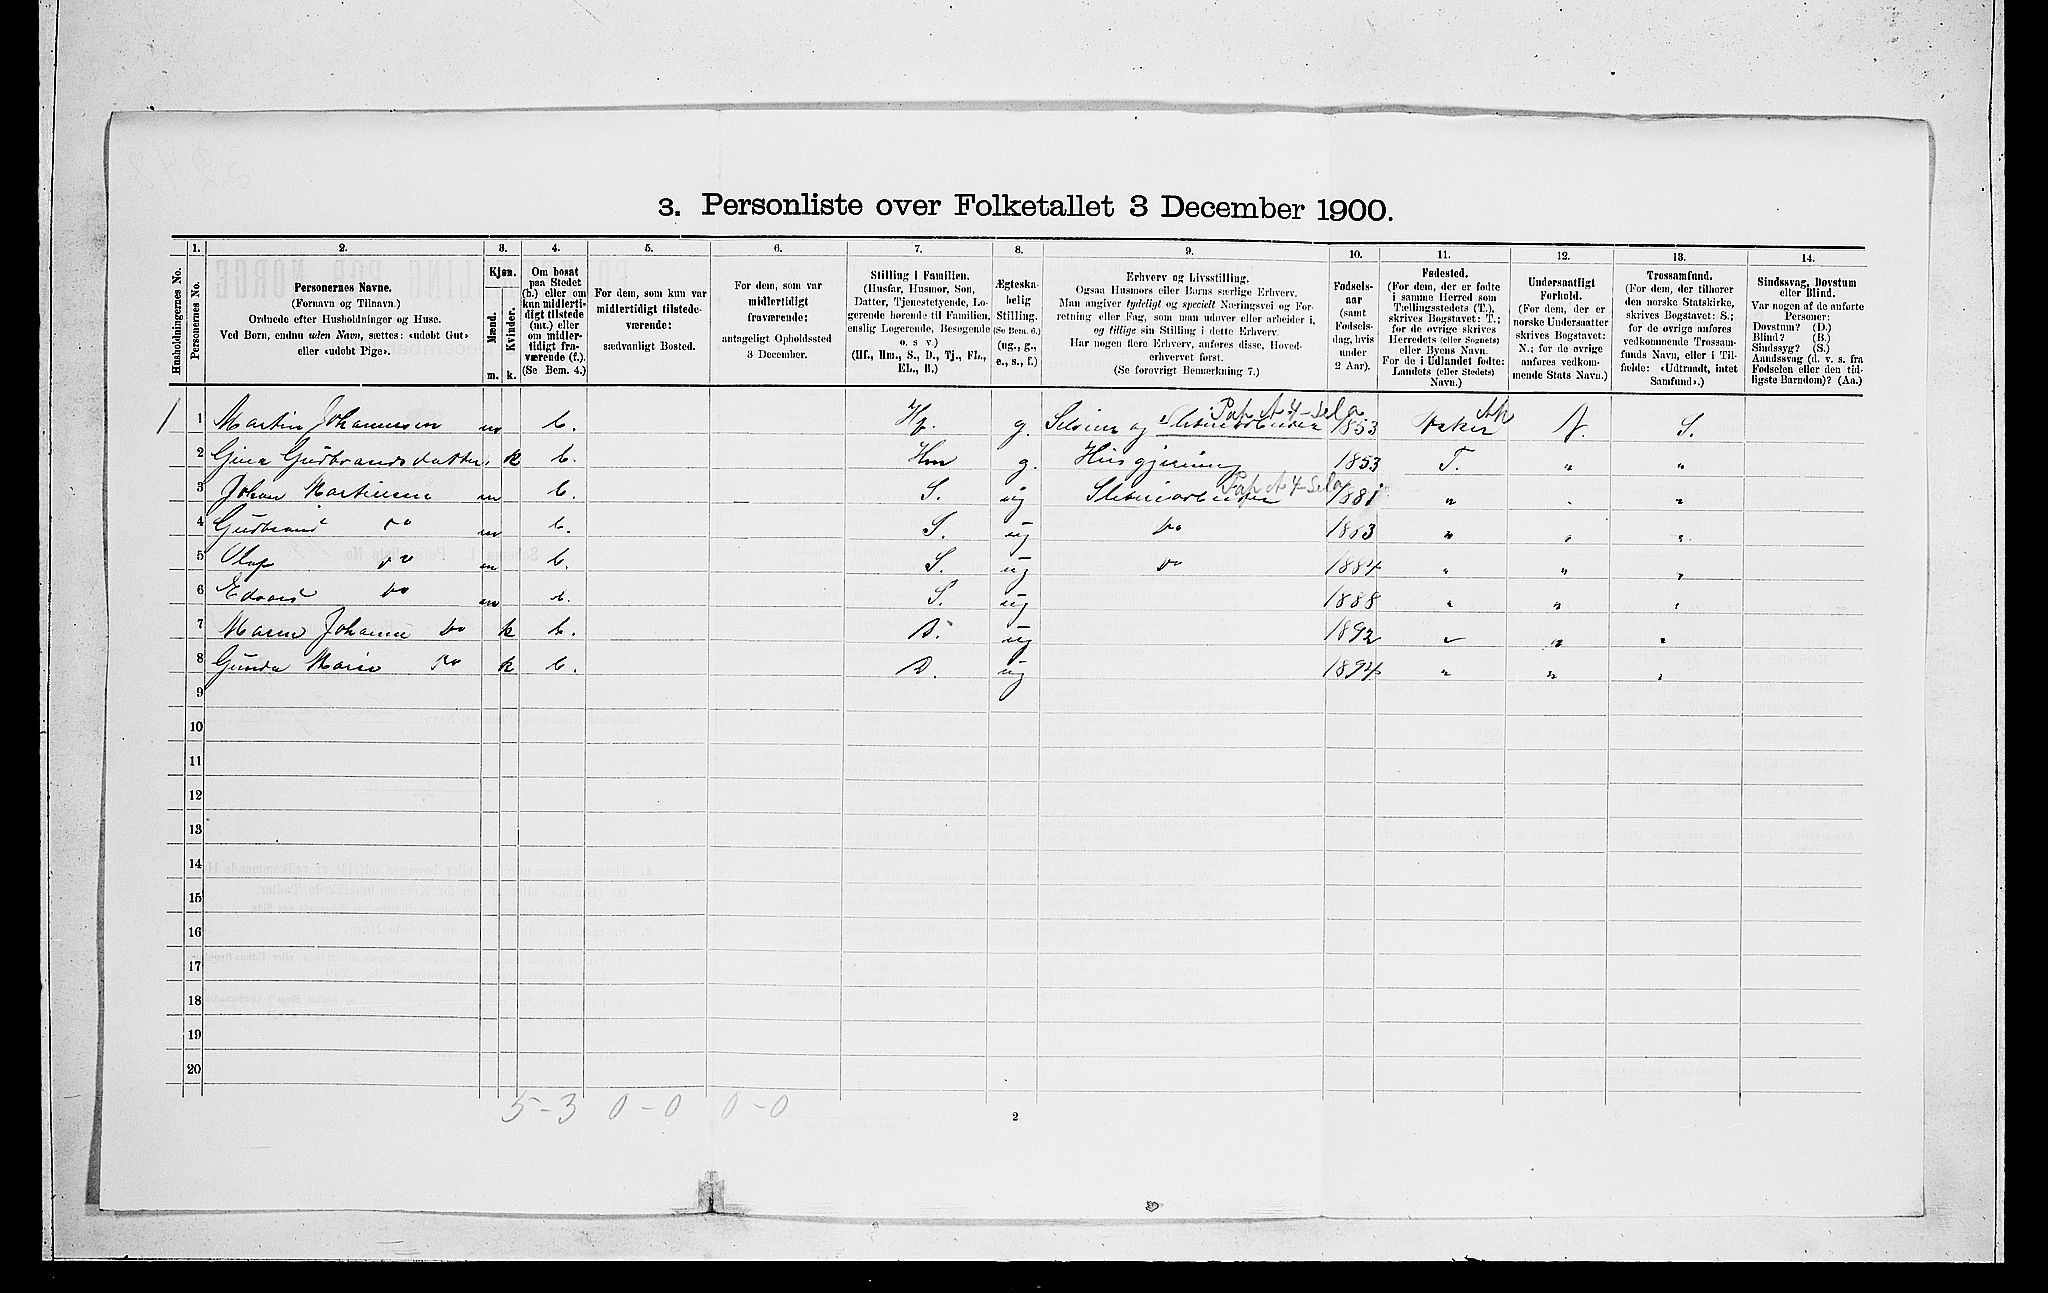 3. Personliste over Folketallet 3 December 1900.
1. 2. 3. 4. 5. 6. 7. 8. 9. 10. 11. 12. 13. 14.
Husholdningernes No.
Personernes No.
Personernes Navne.
(Fornavn og Tilnavn.)
Ordnede efter Husholdninger og Huse.
Ved Børn, endnu uden Navn, sættes: «udøbt Gut»
eller «udøbt Pige».
Kjøn.
Mænd.
Kvinder.
m. k.
Om bosat
paa Stedet
(b.) eller om
kun midlerti-
digt tilstede
(mt.) eller
om midler-
tidigt fra-
værende (f.).
(Se Bem. 4.)
For dem, som kun var
midlertidigt tilstede-
værende:
sædvanligt Bosted.
For dem, som var
midlertidigt
fraværende:
antageligt Opholdssted
3 December.
Stilling i Familien.
(Husfar, Husmor, Søn,
Datter, Tjenestetyende, Lo-
gerende hørende til Familien,
enslig Logerende, Besøgende
o. s v.)
(Hf., Hm., S., D., Tj., FL.,
EL., B.)
Ægteska-
belig
Stilling.
(Se Bem. 6.)
(ug., g.,
e., s., f.)
Erhverv og Livsstilling.
Ogsaa Husmors eller Børns særlige Erhverv.
Man angiver tydeligt og specielt Næringsvei og For-
retning eller Fag, som man udøver eller arbeider i,
og tillige sin Stilling i dette Erhverv.
Har nogen flere Erhverv, anføres disse, Hoved-
erhvervet først.
(Se forøvrigt Bemærkning 7.)
Fødsels-
aar
(samt
Fødsels-
dag, hvis
under
2 Aar).
Fødested.
(For dem, der er fødte
i samme Herred som
Tællingsstedets (T.),
skrives Bogstavet: T.;
for de øvrige skrives
Herredets (eller Sognets)
eller Byens Navn.
For de i Udlandet fødte:
Landets (eller Stedets)
Navn.)
Undersaatligt
Forhold.
(For dem, der er
norske Undersaatter
skrives Bogstavet:
N.; for de øvrige
anføres vedkom-
mende Stats Navn.)
Trossamfund.
(For dem, der tilhører
den norske Statskirke,
skrives Bogstavet: S.;
for de øvrige anføres
vedkommende Trossam-
funds Navn, eller i Til-
fælde: «Udtraadt, intet
Samfund».)
Sindssvag, Døvstum
eller Blind.
Var nogen af de anførte
Personer:
Døvstum? (D.)
Blind? (B.)
Sindssyg? (S.)
Aandssvag (d. v. s. fra
Fødselen eller den tid-
ligste Barndom)? (Aa.)
1 1 Martin Johannesen m b. Hf. g. Selveier og Sliberiarbeider 1853 Asker Ak N. S.
2 Gina Gudbrandsdatter k b. Hm g. Husgjerning 1853 T. " "
3 Johan Martinsen m b. S. ug Sliberiarbeider 1881 " " "
4 Gudbrand Do m b. S. ug Do 1883 " " "
5 Olaf Do m b. S. ug Do 1884 " " "
6 Edvard Do m b. S. ug 1888 " " "
7 Maren Johanne Do k b. D. ug 1892 " " "
8 Gunda Marie Do k b. D. ug 1894 " " "
9
10
11
12
13
14
15
16
17
18
19
20
5-3 0-0 0-0
2